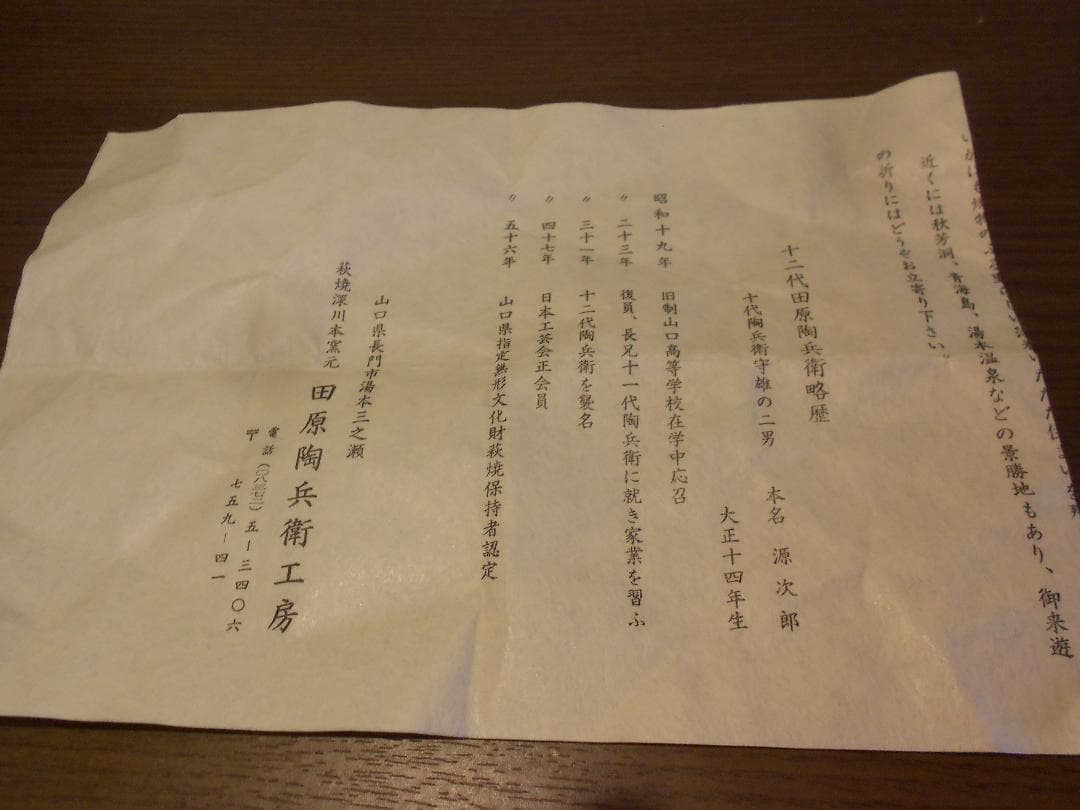 近くには秋芳洞、青海島、湯本温泉などの景勝地もあり、御来遊
の折りにはどうぞお立寄り下さい。
十二代田原陶兵衛略歴
本名 源次郎
十代陶兵衛守雄の二男
大正十四年生
昭和十九年 旧制山口高等学校在学中応召
〃 二十三年 復員、長兄十一代陶兵衛に就き家業を習ふ
〃 三十一年 十二代陶兵衛を襲名
〃 四十七年 日本工芸会正会員
〃 五十六年 山口県指定無形文化財萩焼保持者認定
山口県長門市湯本三之瀬
萩焼深川本窯元 田原陶兵衛工房
電話(〇八三七二)五ー三四〇六
〒 七五九ー四一